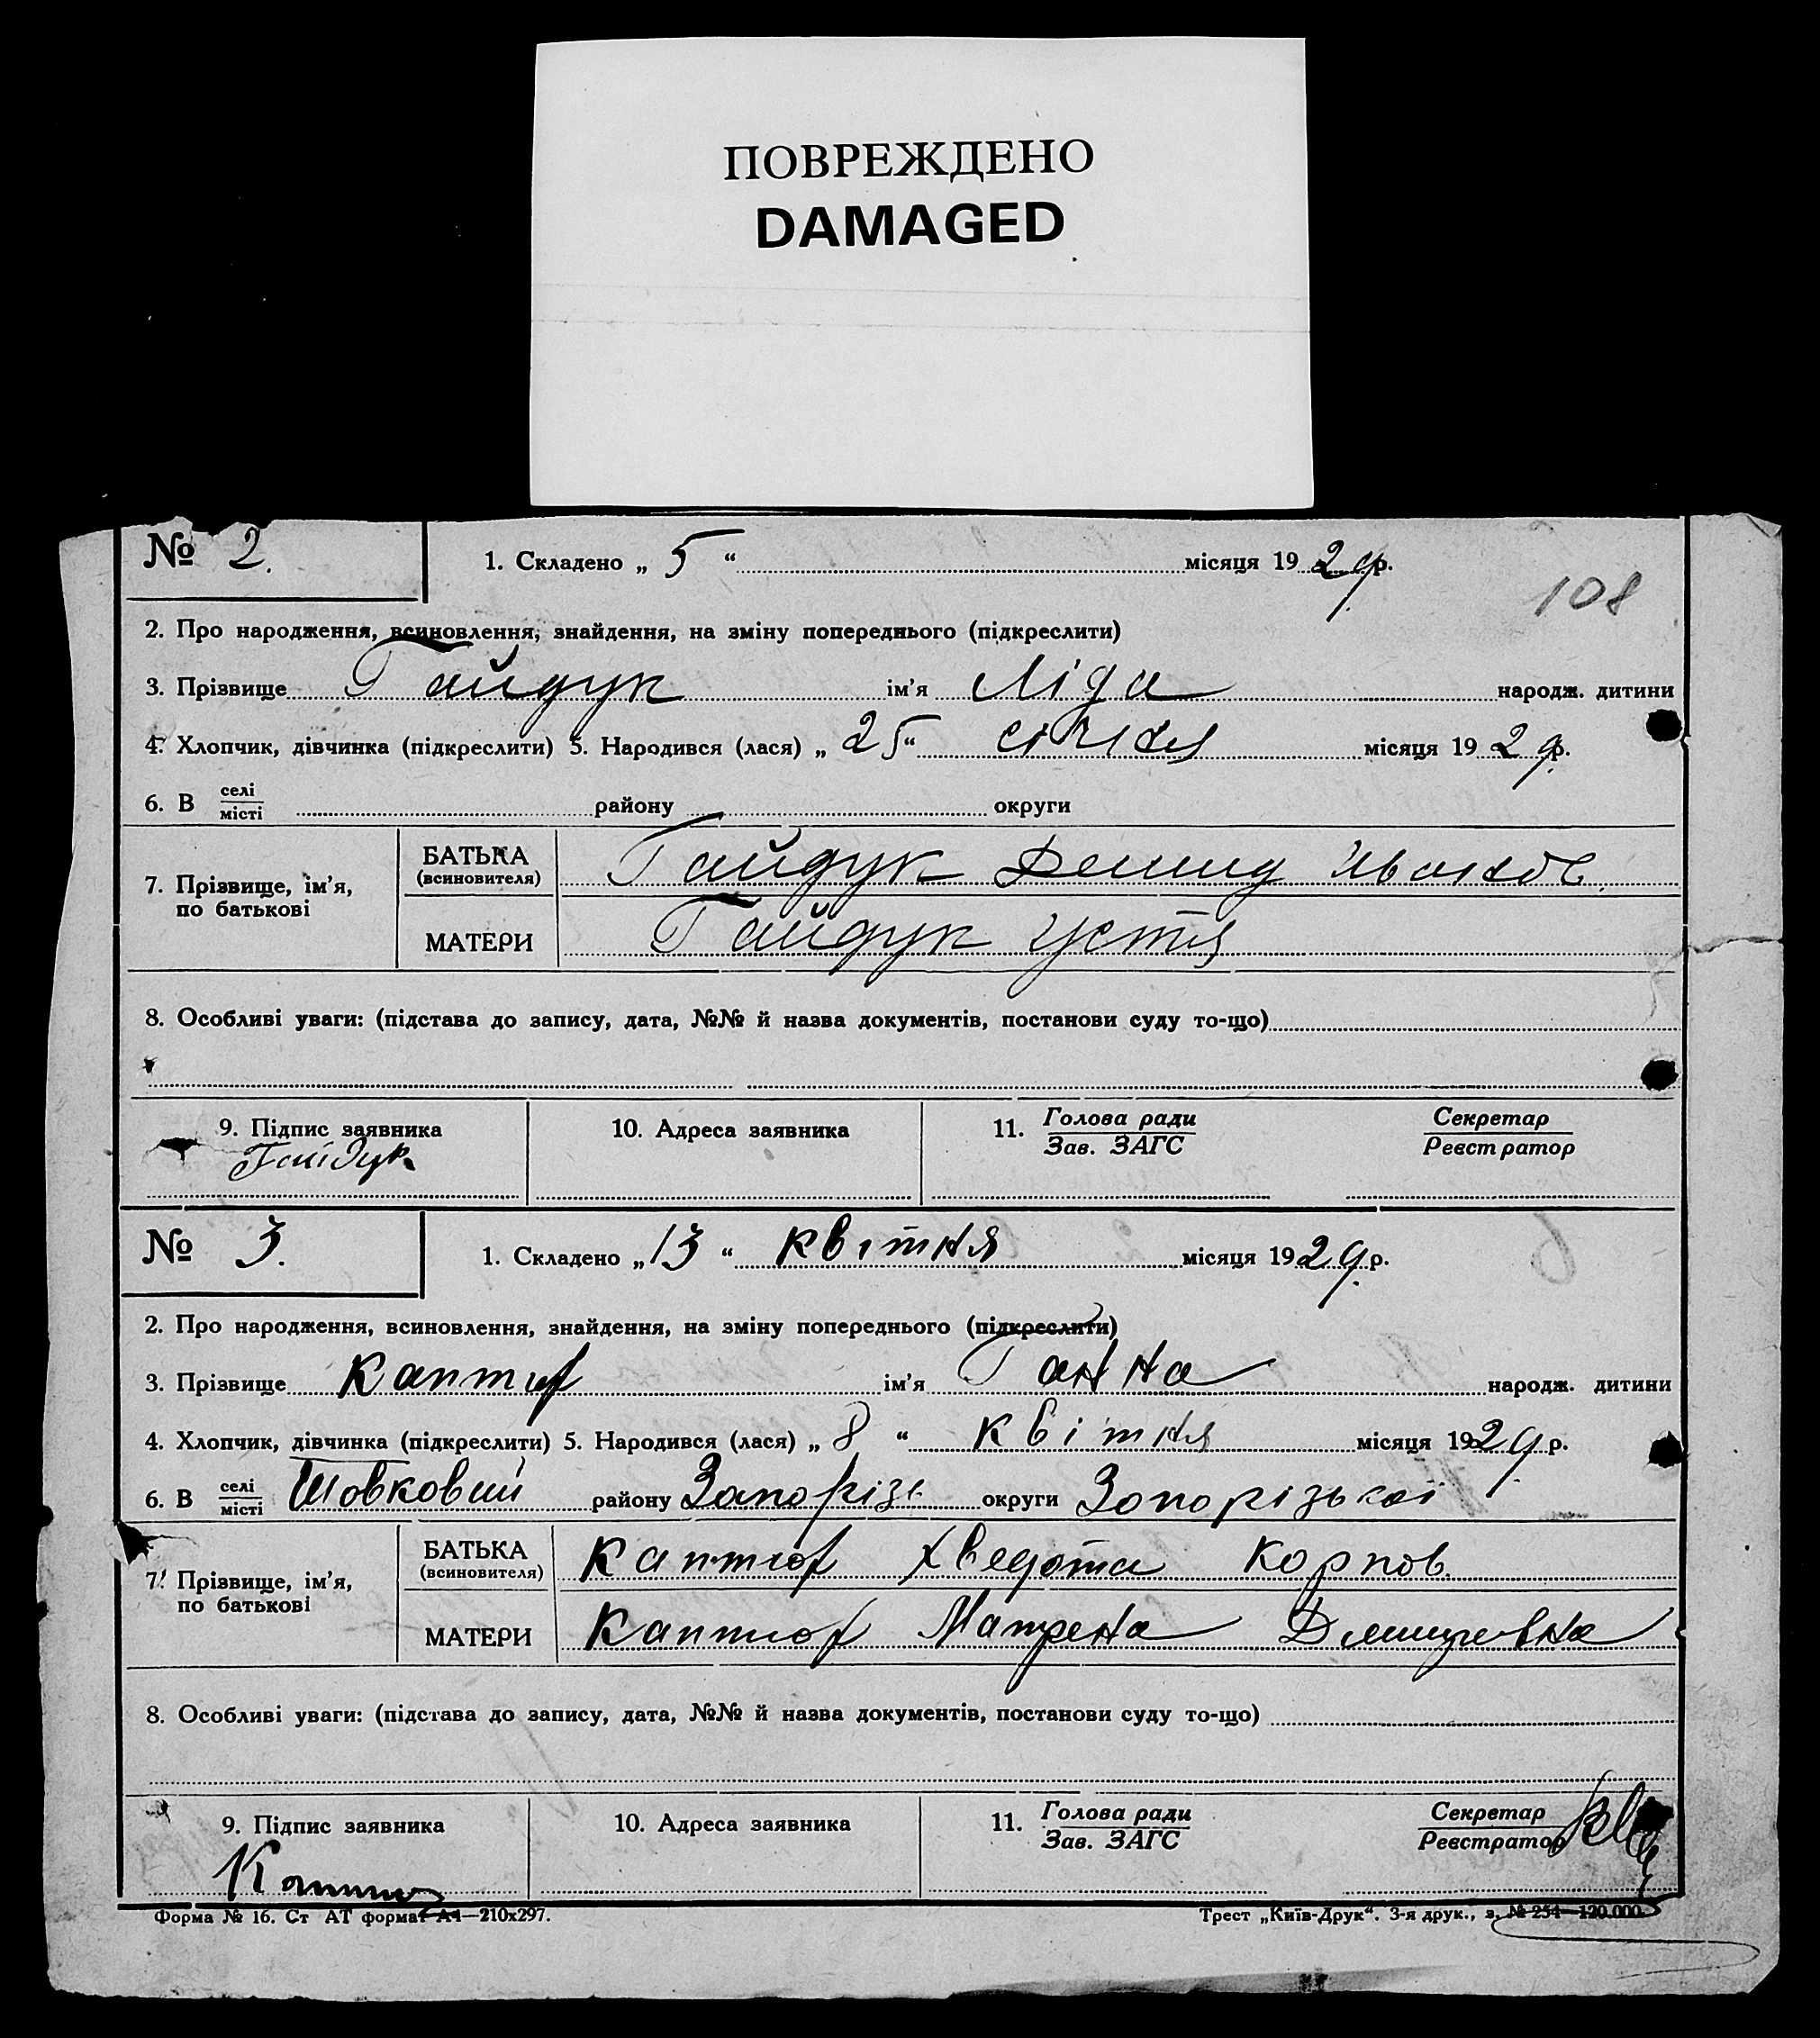 ПОВРЕЖДЕНО
DAMAGED
№ 2.
1. Складено „ 5 “ місяця 1929 р.
108
2. Про народження, всиновлення, знайдення, на зміну попереднього (підкреслити)
3. Прізвище Гайдук ім'я Ліда народж. дитини
4. Хлопчик, дівчинка (підкреслити) 5. Народився (лася) „ 25 “ січня місяця 1929 р.
6. В селі/місті району округи
7. Прізвище, ім'я, по батькові
БАТЬКА (всиновителя) Гайдук Демид Иванов.
МАТЕРИ Гайдук Устя
8. Особливі уваги: (підстава до запису, дата, №№ й назва документів, постанови суду то-що)
9. Підпис заявника 10. Адреса заявника 11. Голова ради/Зав. ЗАГС Секретар/Реєстратор
Гайдук
№ 3.
1. Складено „ 13 “ квітня місяця 1929 р.
2. Про народження, всиновлення, знайдення, на зміну попереднього (підкреслити)
3. Прізвище ім'я Ганна народж. дитини
4. Хлопчик, дівчинка (підкреслити) 5. Народився (лася) „ 8 “ квітня місяця 1929 р.
6. В селі/місті Шовковий району Запорізь округи Запорізької
7. Прізвище, ім'я, по батькові
БАТЬКА (всиновителя) Каптюх Хведота Корпов.
МАТЕРИ Каптюх Матрена
8. Особливі уваги: (підстава до запису, дата, №№ й назва документів, постанови суду то-що)
9. Підпис заявника 10. Адреса заявника 11. Голова ради/Зав. ЗАГС Секретар/Реєстратор
Форма № 16. Ст АТ формат А4—210x297.
Трест „Київ-Друк“. 3-я друк., з. № 254—120.000.